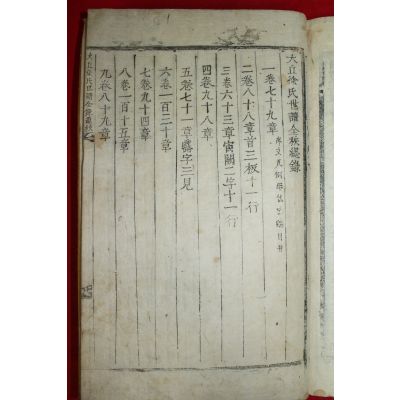 大丘徐氏世譜全族總錄
一卷七十九章
二卷八十八章首三板十一行
三卷六十三章寅闕二字十一行
四卷九十八章
五卷七十一章露字三見
六卷一百三十章
七卷九十四章
八卷一百十五章
九卷八十九章
大丘徐氏世譜全